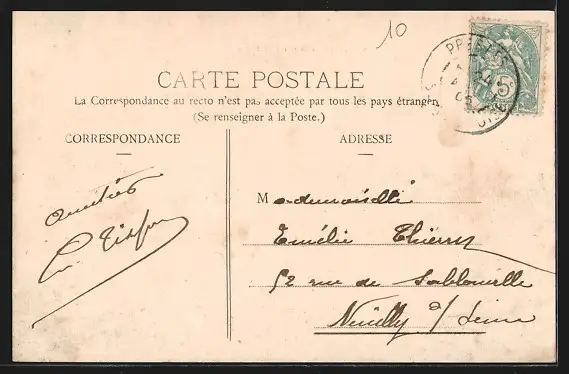 10
CARTE POSTALE
La Correspondance au recto n'est pas acceptée par tous les pays étranger
(Se renseigner à la Poste.)
CORRESPONDANCE
ADRESSE
Amitiés
Mademoiselle
Emélie Thierry
52 rue de Sablonville
Neuilly s/ Seine